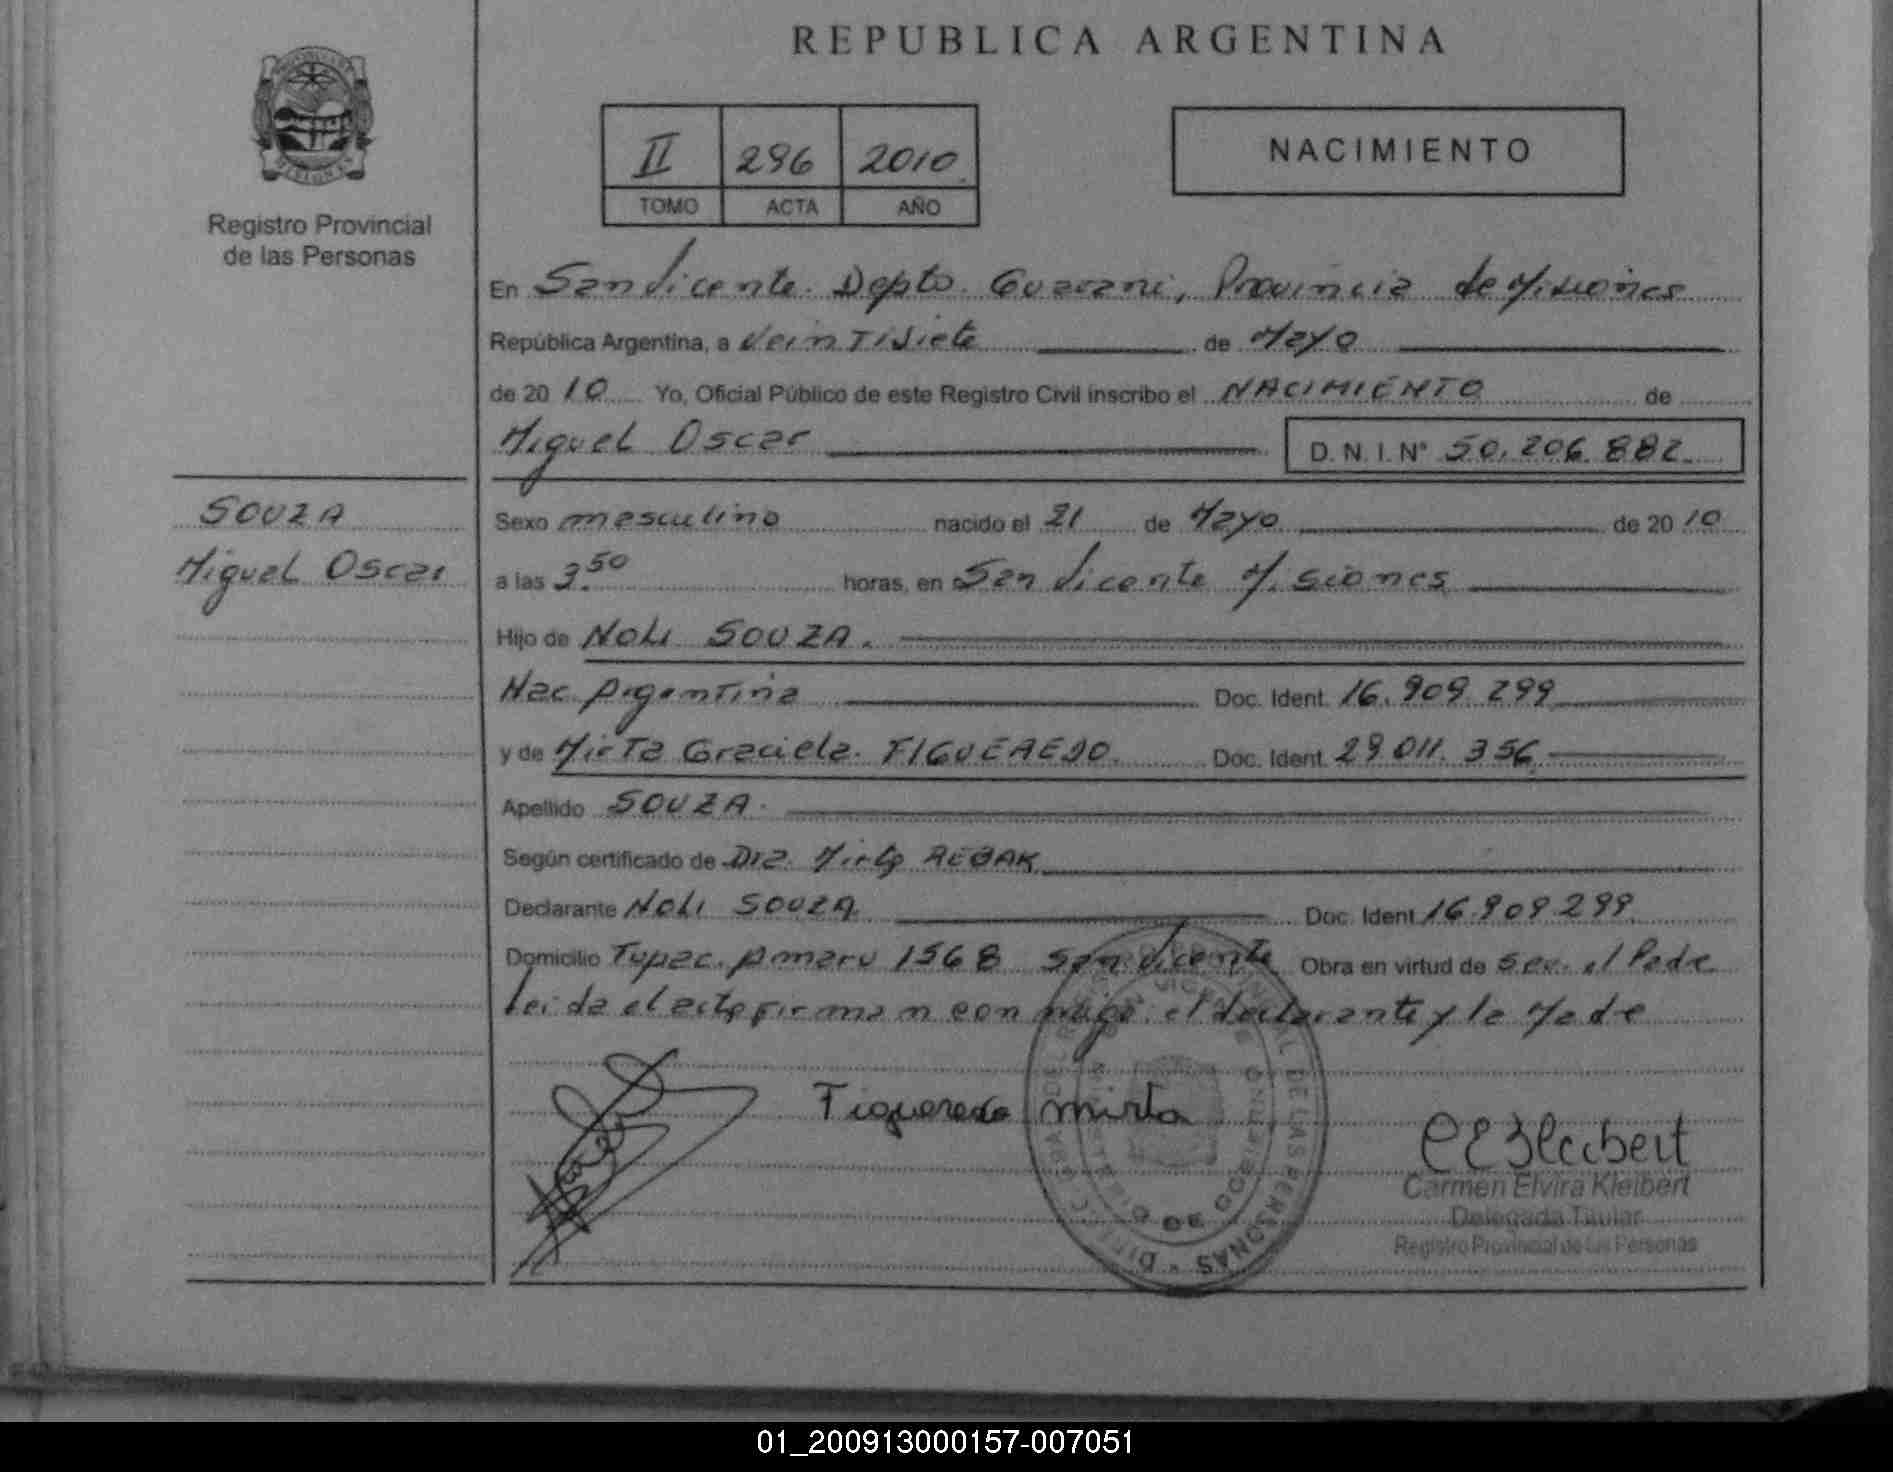 REPUBLICA ARGENTINA
MISIONES
Registro Provincial
de las Personas
II 296 2010
TOMO ACTA AÑO
NACIMIENTO
En San Vicente. Depto. Guarani, Provincia de Misiones
República Argentina, a VeinTisiete de Mayo
de 20 10 Yo, Oficial Público de este Registro Civil inscribo el NACIMIENTO de
Miguel Oscar D. N. I. N° 50.206.882
SOUZA
Miguel Oscar
Sexo masculino nacido el 21 de Mayo de 20 10
a las 3.50 horas, en San Vicente Misiones
Hijo de NOLI SOUZA.
Nac. Argentina Doc. Ident. 16.909.299
y de MirTa Graciela. FIGUEREDO. Doc. Ident. 29.011.356
Apellido SOUZA.
Según certificado de Dra. Mirta REBAK
Declarante NOLI SOUZA Doc. Ident 16.909.299
Domicilio Tupac. Amaru 1568 San Vicente Obra en virtud de ser el Padre
leida el acta firman con migo el declarante y la Madre
Figueredo mirta
CEKleibert
Carmen Elvira Kleibert
Delegada Titular
Registro Provincial de las Personas
01_200913000157-007051